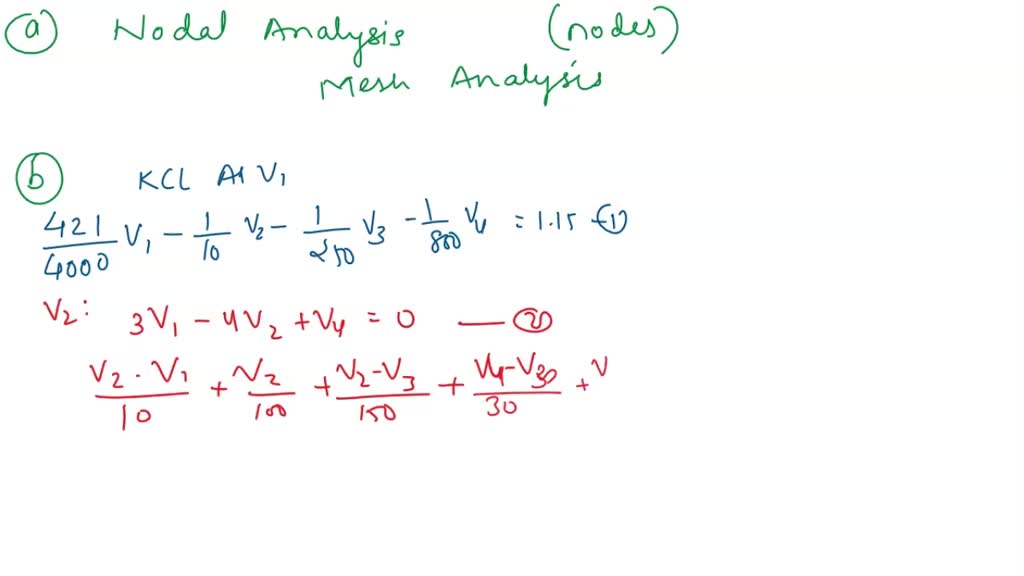 (a) Nodal Analysis (nodes)
Mesh Analysis
(b) KCL At V₁
421/4000 V₁ - 1/10 V₂ - 1/250 V₃ - 1/800 V₄ = 1.15 -①
V₂: 3V₁ - 4V₂ + V₄ = 0 — ②
V₂ - V₁/10 + V₂/100 + V₂-V₃/150 + V₄-V₃₀/30 + V